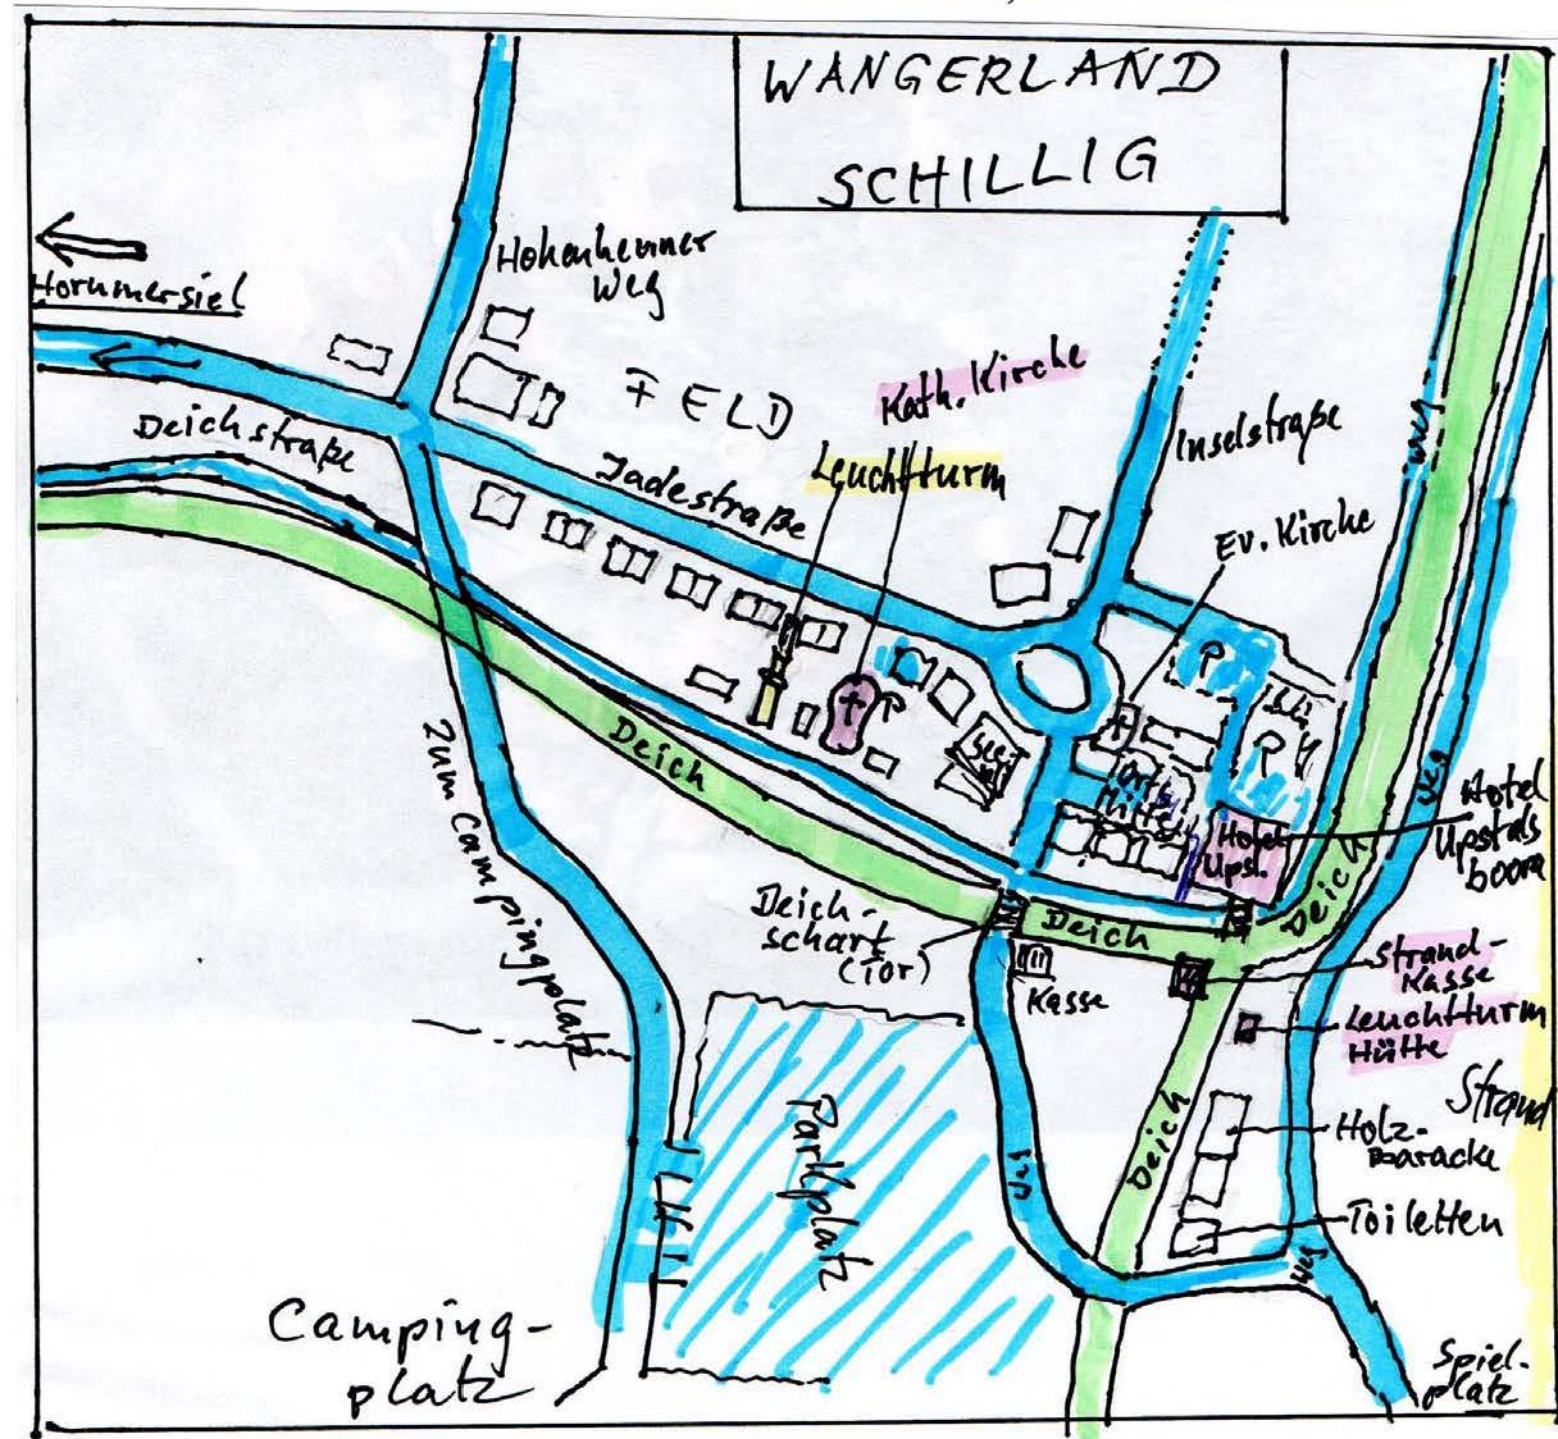 WANGERLAND
SCHILLIG
Hohenkenner
Weg
Hornmersiel
Deichstraße
FELD
Kath. Kirche
Leuchtturm
Jadestraße
Inselstraße
Ev. Kirche
Weg
P
P
P
Orts
Mitte
Hotel
Upsl.
Hotel
Upstals
boom
Weg
Deich
Deich
Deich
Deich
Zum Campingplatz
Deich-
schart
(Tor)
Kasse
Strand-
Kasse
Leuchtturm
Hütte
Strand
Holz-
Baracke
Toiletten
Parkplatz
Weg
Weg
Camping-
platz
Spiel-
platz